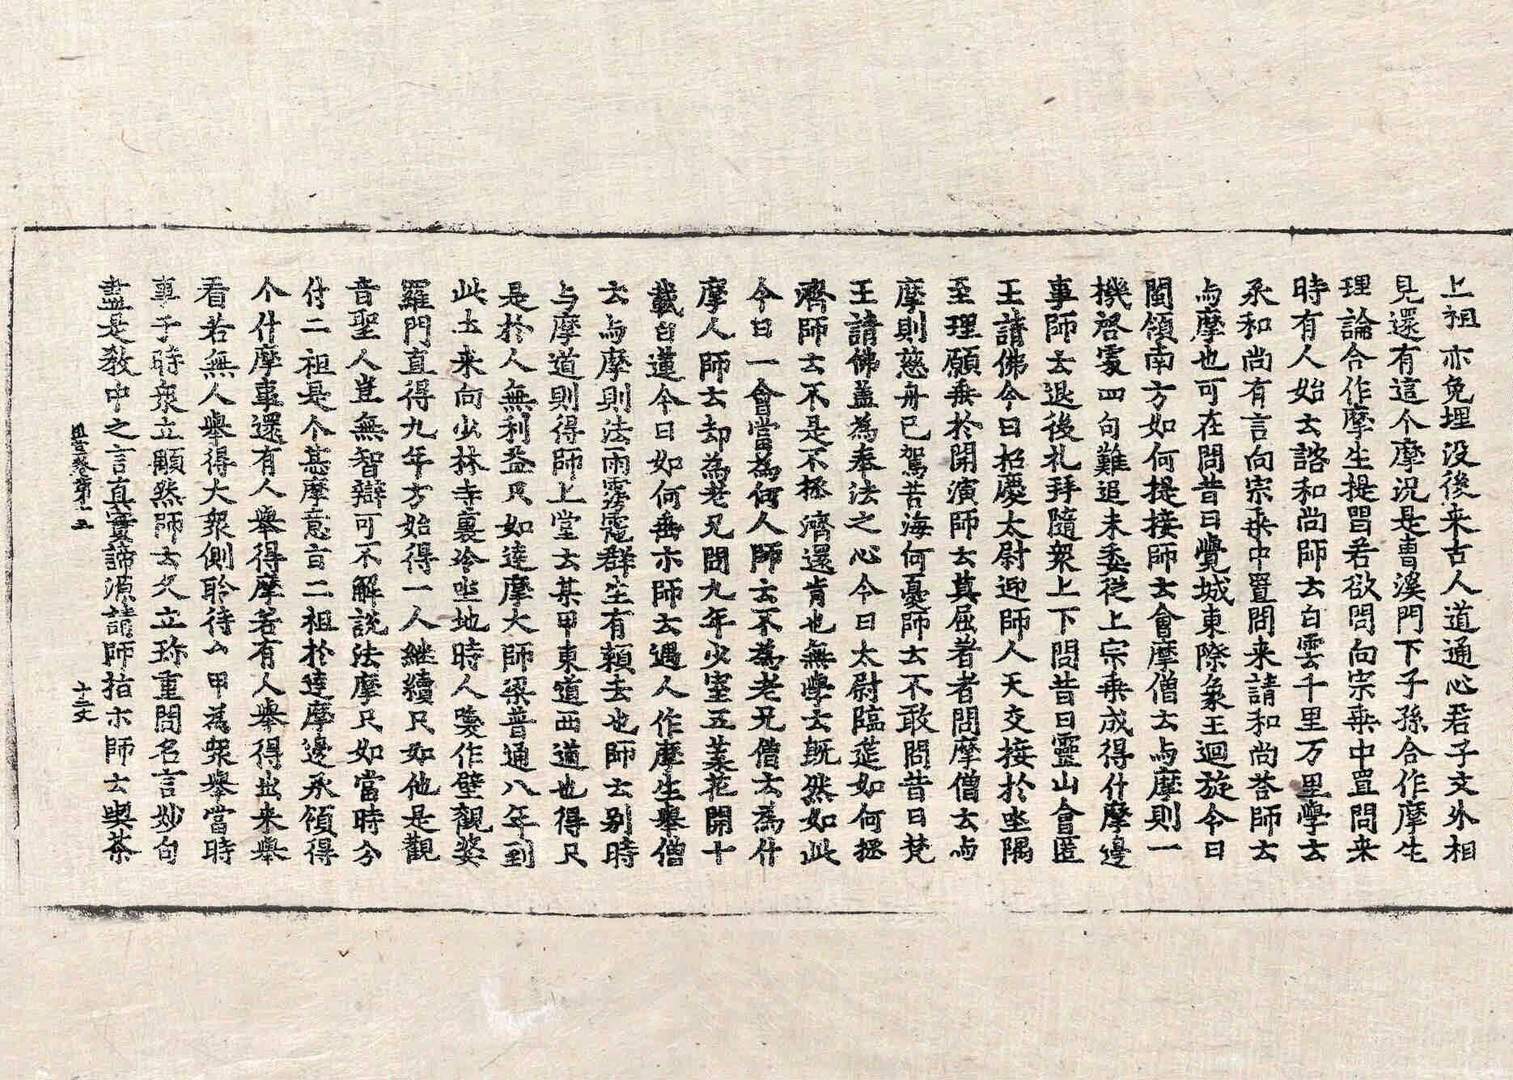 上祖亦免埋没後来古人道通心君子文外相
見還有這个摩況是曹溪門下子孫合作摩生
理論合作摩生提唱若欲問向宗乘中置問来
時有人始去諮和尚師云白雲千里万里學云
承和尚有言向宗乘中置問来請和尚荅師云
与摩也可在問昔日覺城東際象王迴旋今日
閩嶺南方如何提接師云會摩僧云与摩則一
機啓處四句難追未委從上宗乘成得什摩邊
事師云退後礼拜隨衆上下問昔日靈山會匿
王請佛今日招慶太尉迎師人天交接於坐隅
至理願垂於開演師云莫屈著者問摩僧云与
摩則慈舟已駕苦海何憂師云不敢問昔日梵
王請佛盖為奉法之心今日太尉臨筵如何拯
濟師云不是不拯濟還肯也無學云既然如此
今日一會當為何人師云不為老兄僧云為什
摩人師云却為老兄問九年少室五葉花開十
載白蓮今日如何垂示師云遇人作摩生舉僧
云与摩則法雨霶霑群生有賴去也師云别時
与摩道則得師上堂云某甲東道西道也得只
是於人無利益只如達摩大師梁普通八年到
此土来向少林寺裏冷坐地時人喚作壁觀婆
羅門直得九年方始得一人継續只如他是觀
音聖人豈無智辯可不解說法摩只如當時分
付二祖是个甚摩意旨二祖於達摩邊承領得
个什摩事還有人舉得摩若有人舉得出来舉
看若無人舉得大衆側聆待ム甲為衆舉當時
事于時衆立顒然師云久立珍重問名言妙句
盡是教中之言真實諦源請師指示師云喫茶
卷第十三
十二丈